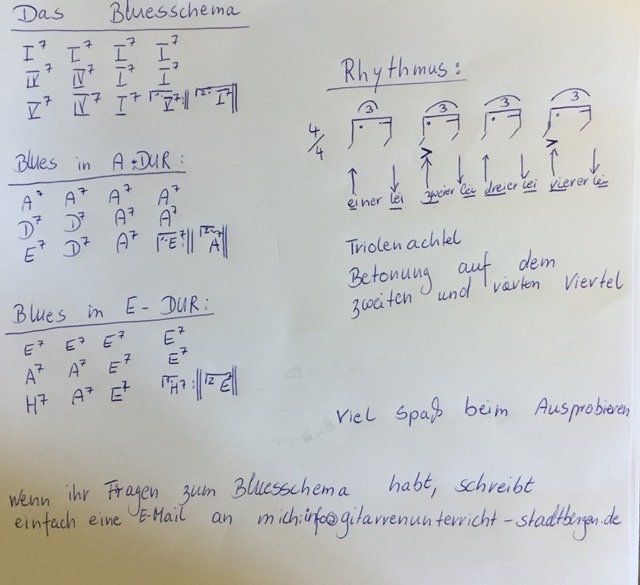 Das Bluesschema
I7 I7 I7 I7
IV7 IV7 I7 I7
V7 IV7 I7 1. V7 :|| 2. I7 ||
Blues in A-DUR:
A7 A7 A7 A7
D7 D7 A7 A7
E7 D7 A7 1. E7 :|| 2. A ||
Blues in E-DUR:
E7 E7 E7 E7
A7 A7 E7 E7
H7 A7 E7 1. H7 :|| 2. E7 ||
Rhythmus:
3 3 3 3
4/4
> >
einer lei zweier lei dreier lei vierer lei
Triolenachtel
Betonung auf dem
zweiten und vierten Viertel
Viel Spaß beim Ausprobieren
Wenn ihr Fragen zum Bluesschema habt, schreibt
einfach eine E-Mail an mich: info@gitarrenunterricht-stadtbergen.de